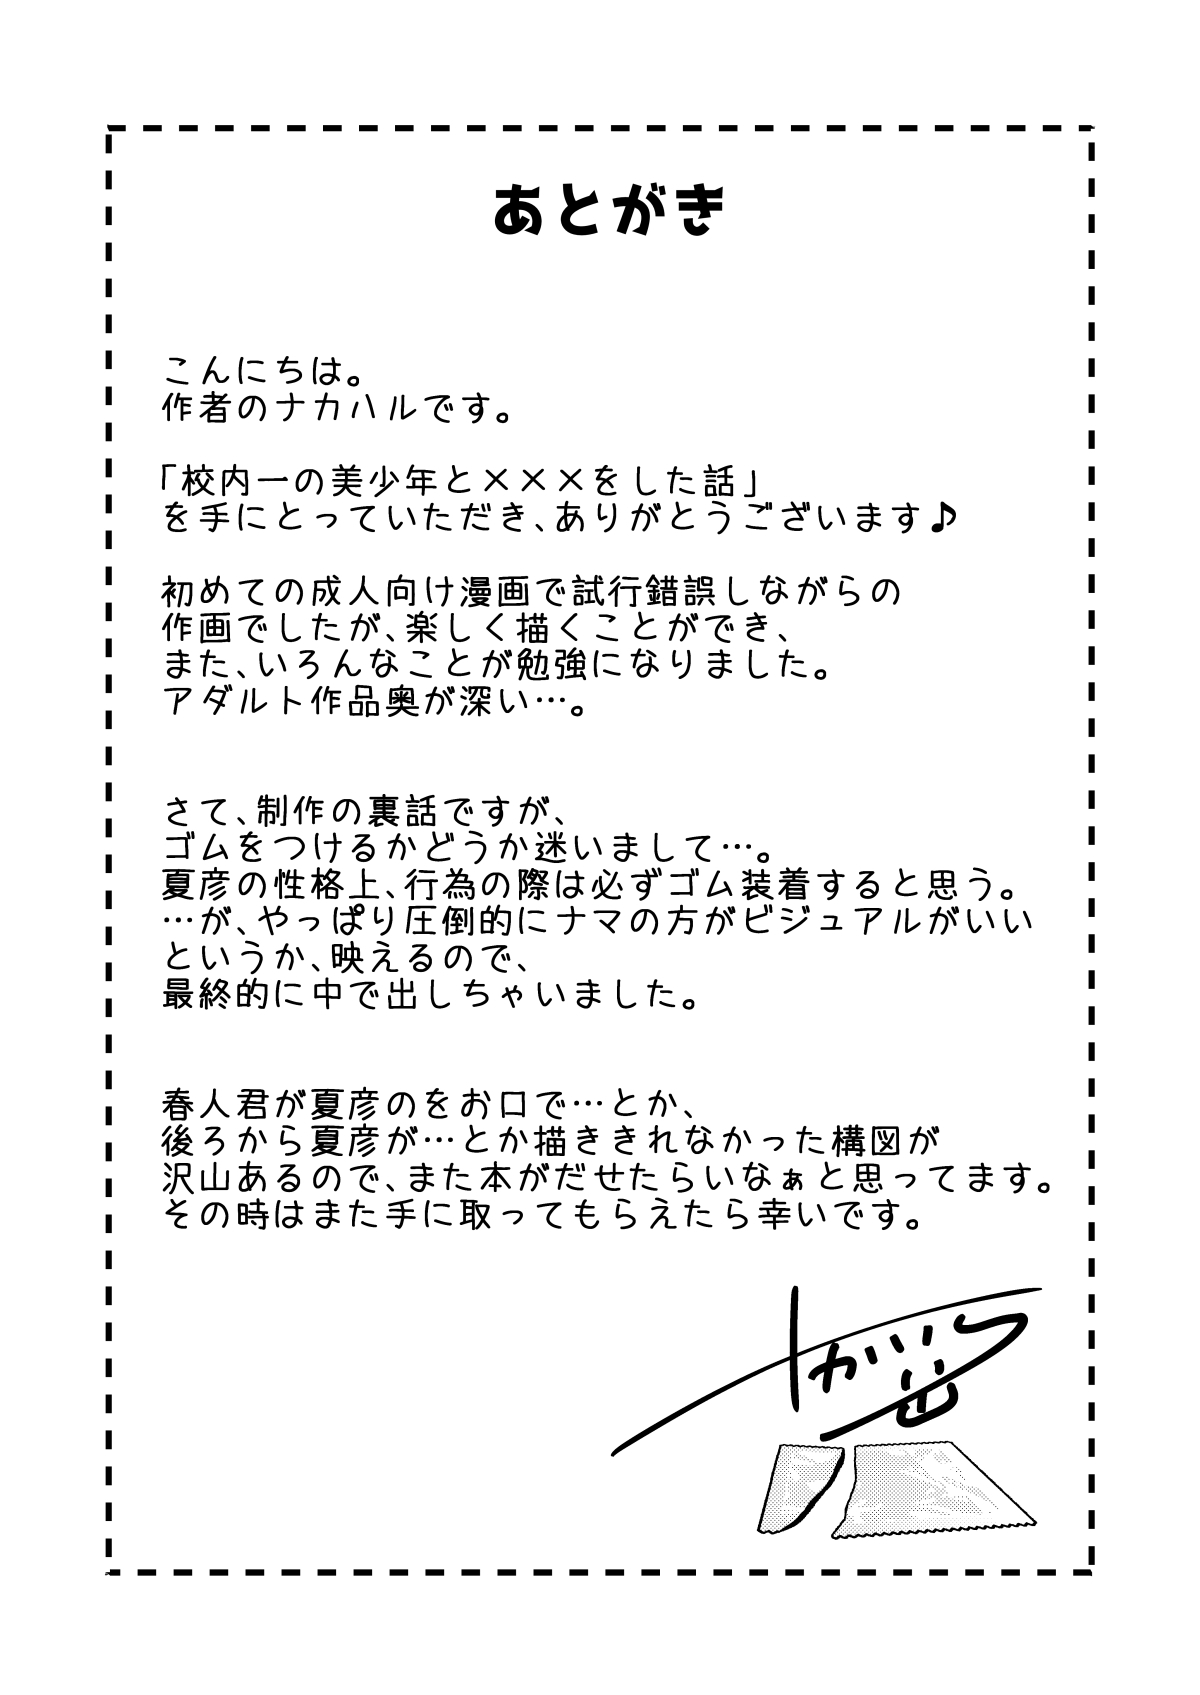 あとがき
こんにちは。
作者のナカハルです。
「校内一の美少年と×××をした話」
を手にとっていただき、ありがとうございます♪
初めての成人向け漫画で試行錯誤しながらの
作画でしたが、楽しく描くことができ、
また、いろんなことが勉強になりました。
アダルト作品奥が深い…。
さて、制作の裏話ですが、
ゴムをつけるかどうか迷いまして…。
夏彦の性格上、行為の際は必ずゴム装着すると思う。
…が、やっぱり圧倒的にナマの方がビジュアルがいい
というか、映えるので、
最終的に中で出しちゃいました。
春人君が夏彦のをお口で…とか、
後ろから夏彦が…とか描ききれなかった構図が
沢山あるので、また本がだせたらいなぁと思ってます。
その時はまた手に取ってもらえたら幸いです。